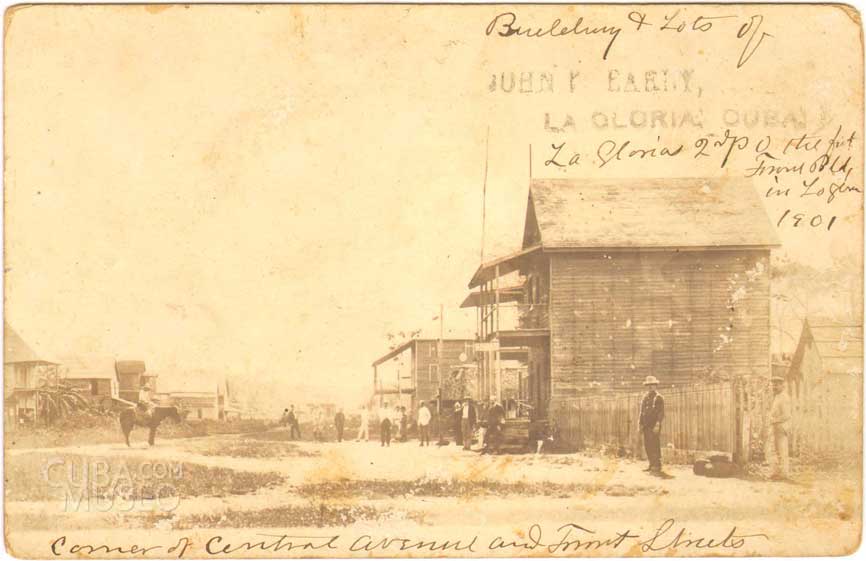 Building & Lots of
JOHN F. EARLY,
LA GLORIA, CUBA.
La Glorias 2nd P O the fst
Frame Bld,
in Logloria
1901
CUBA.COM
MUSEO
Corner of Central Avenue and Front Streets